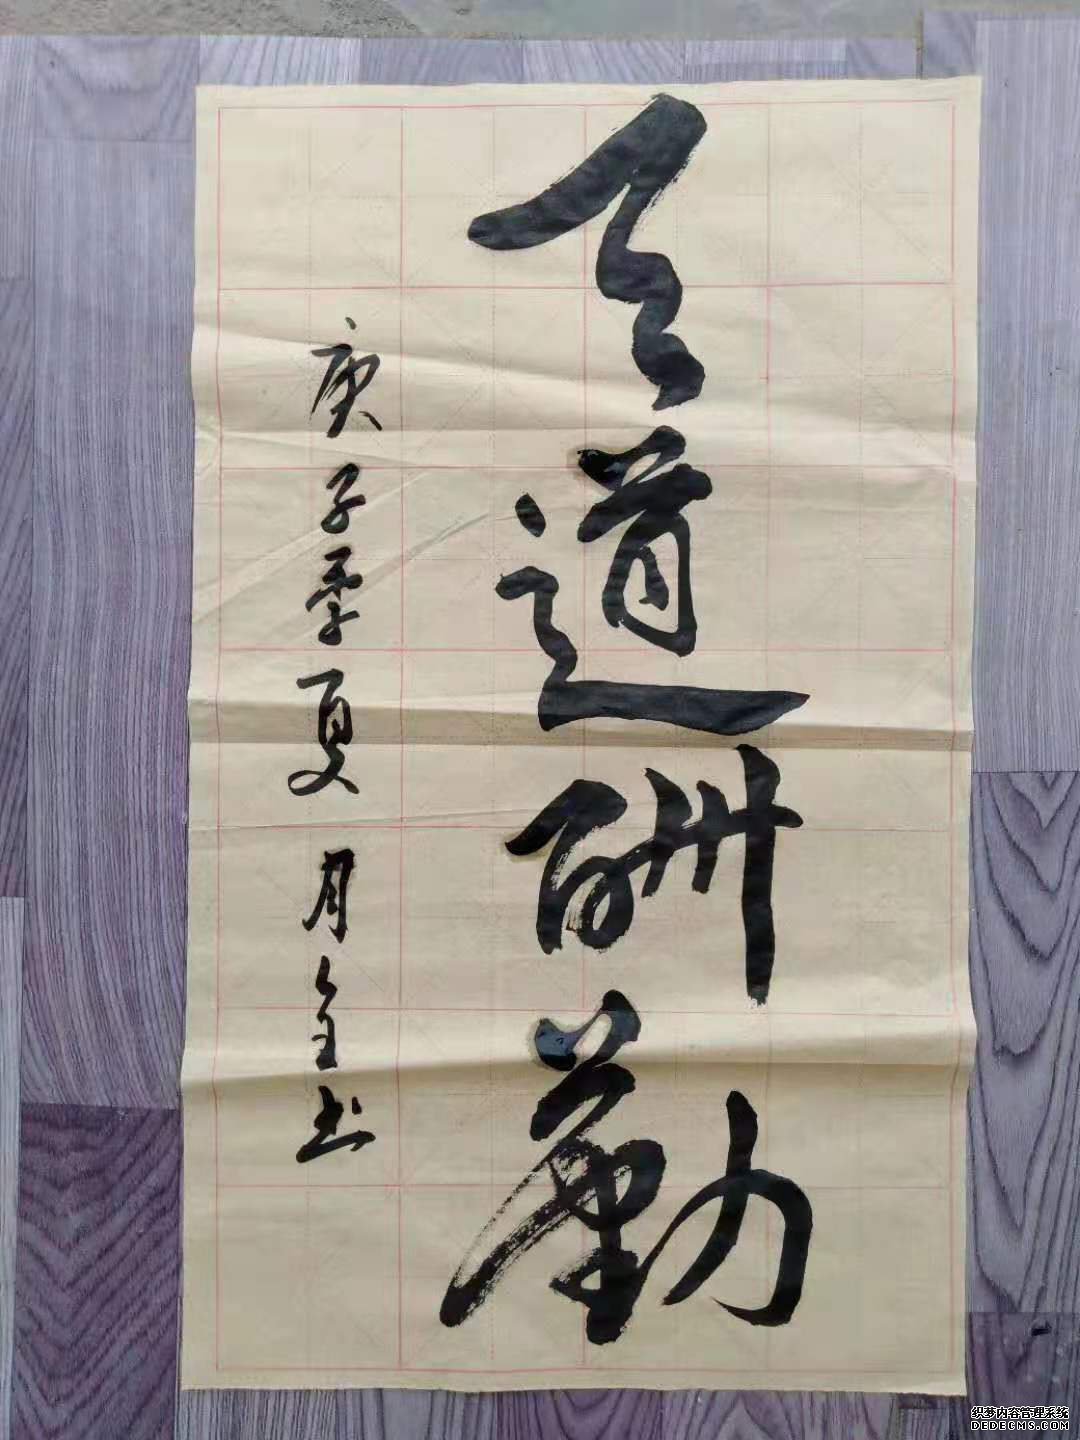 天道酬勤
庚子季夏 月全书
织梦内容管理系统
DEDECMS.COM